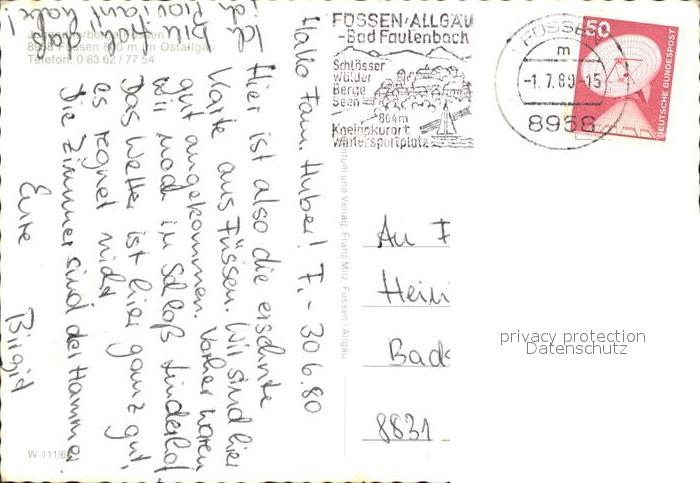 Jugendherberge Füssen
8958 Füssen 800 m im Ostallgäu
Telefon: 0 83 62 / 77 54
Hallo Fam. Huber! F. - 30.6.80
Hier ist also die ersehnte
Karte aus Füssen. Wir sind hier
gut angekommen. Vorher waren
wir noch in Schloß Linderhof.
Das Wetter ist hier ganz gut,
es regnet nicht.
Die Zimmer sind der Hammer.
Eure
Birgit
W 111/6
Verlag Franz Milz, Füssen/Allgäu
FÜSSEN/ALLGÄU
-Bad Faulenbach
Schlösser
Wälder
Berge
Seen
804m
Kneippkurort
Wintersportplatz
FÜSSEN
m
-1.7.80-15
8958
50
DEUTSCHE BUNDESPOST
An F
Heini
Bads
8831
privacy protection
Datenschutz